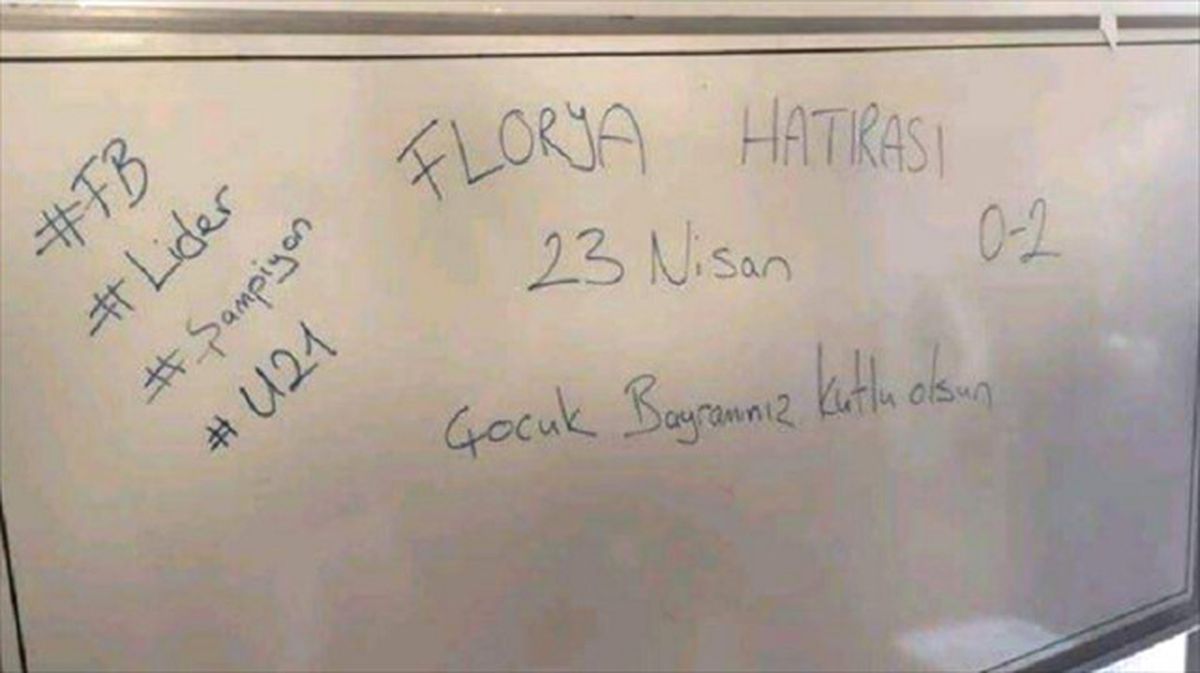 FLORYA HATIRASI
23 Nisan
0-2
Çocuk Bayramınız kutlu olsun
#FB
#Lider
#Şampiyon
#U21